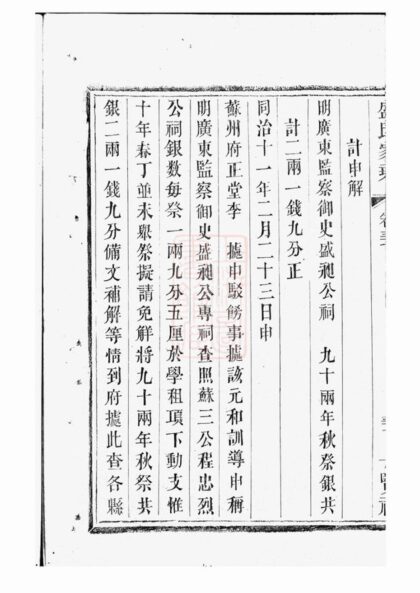 盛氏家乘
計申解
明廣東監察御史盛昶公祠　九十兩年秋祭銀共
計二兩一錢九分正
同治十一年二月二十三日申
蘇州府正堂李　據申駁飭事據該元和訓導申稱
明廣東監察御史盛昶公專祠查照蘇三公程忠烈
公祠銀数每祭一兩九分五厘於學租項下動支惟
十年春丁並未舉祭擬請免觧將九十兩年秋祭共
銀二兩一錢九分備文補解等情到府據此查各縣